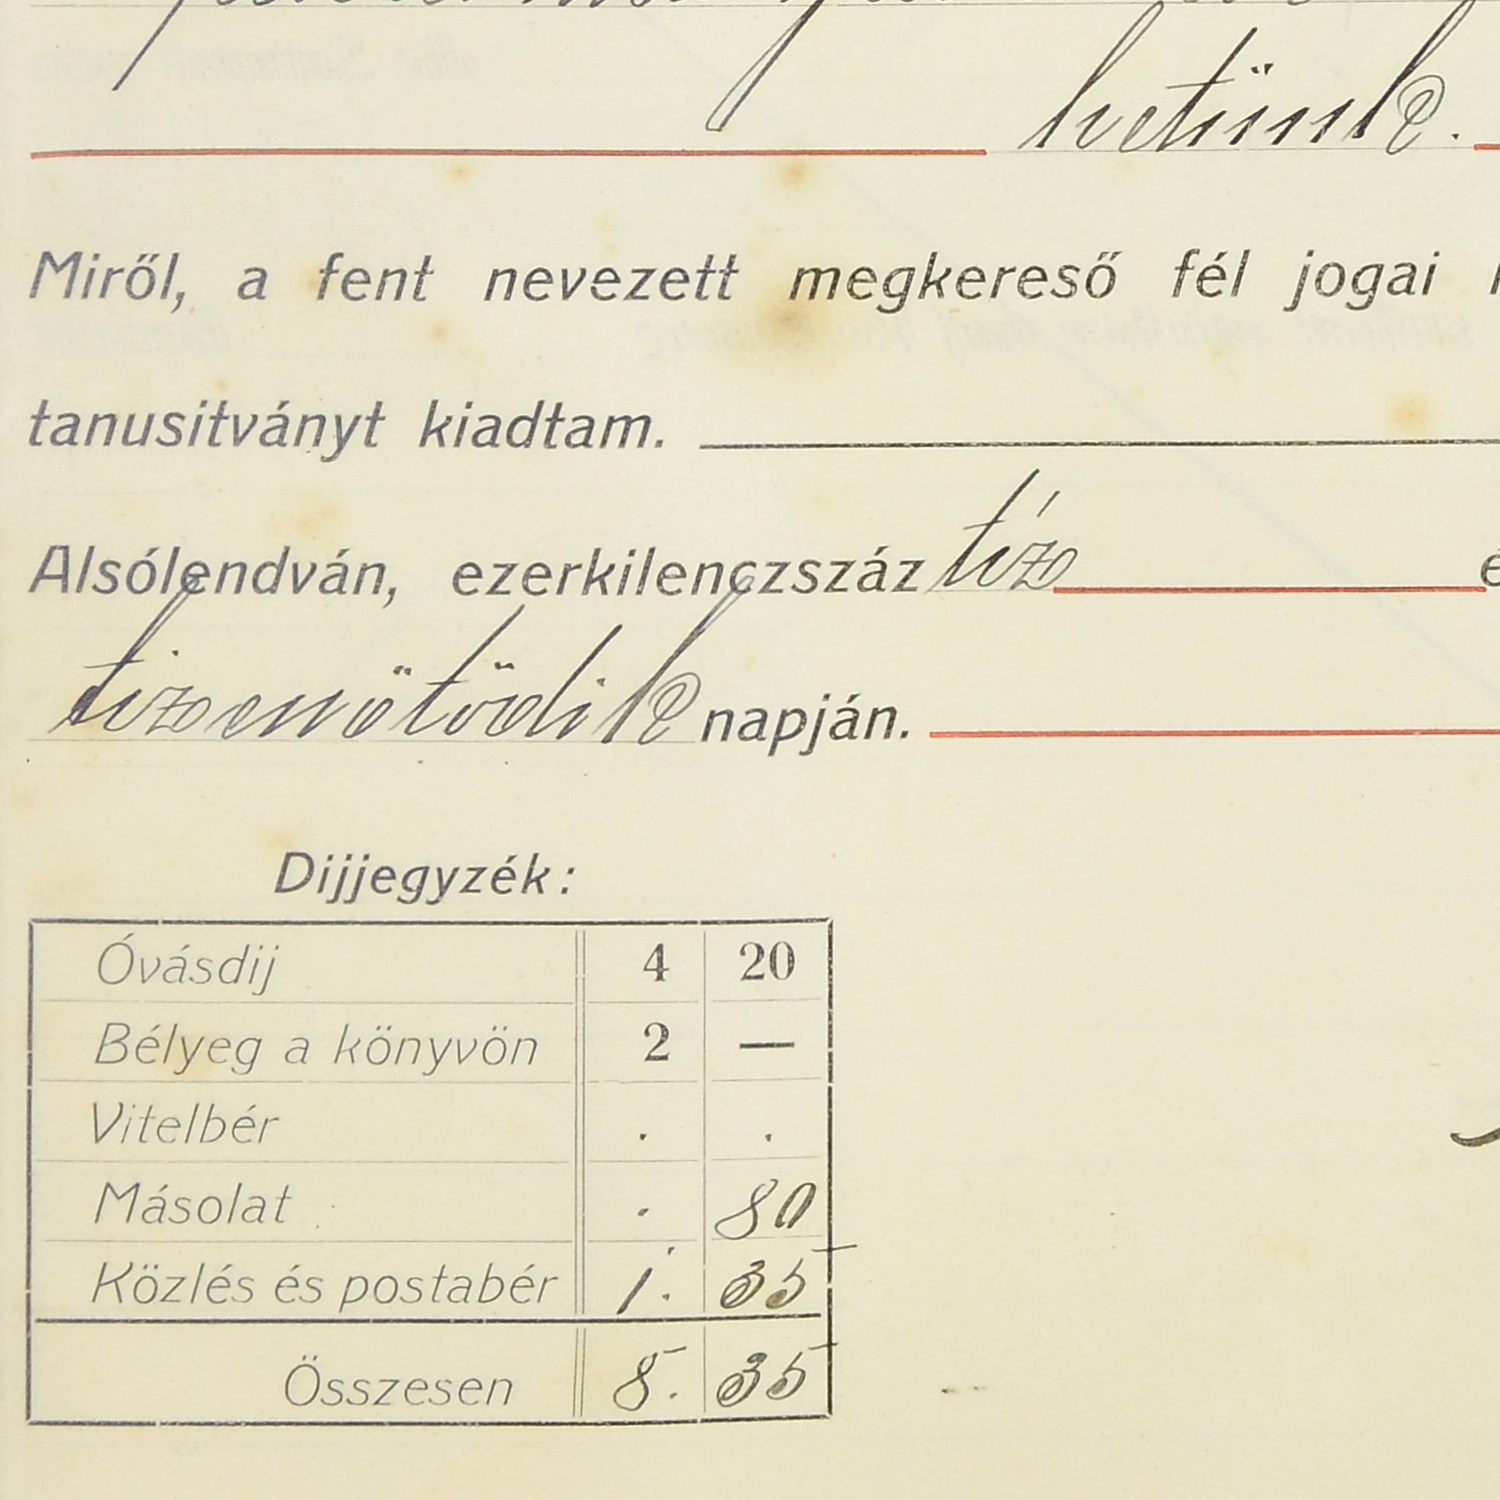 hetünk.
Miről, a fent nevezett megkereső fél jogai
tanusitványt kiadtam.
Alsólendván, ezerkilenczszáz tíz
tizenötödik napján.
Dijjegyzék:
Óvásdij 4 20
Bélyeg a könyvön 2 —
Vitelbér . .
Másolat . 80
Közlés és postabér 1. 35
Összesen 8. 35